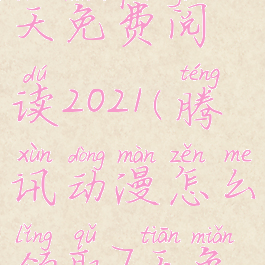 天免费阅
dú téng
读2021(腾
xùn dòng màn zěn me
讯动漫怎么
lǐng qǔ tiān miǎn
领取7天免